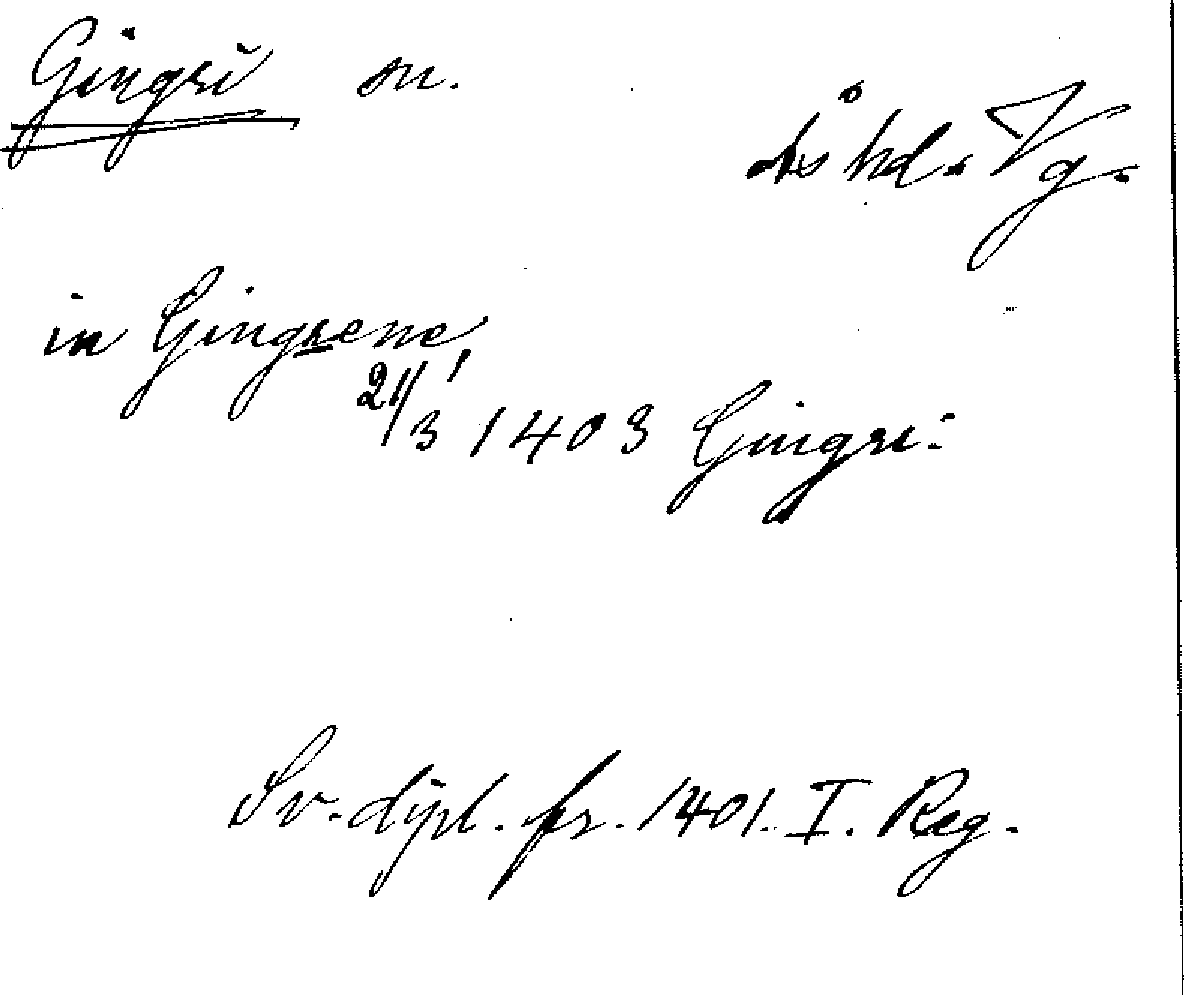 Gingri sn.
Ås hd. Vg.
in Gingrene
21/3 1403 Gingri:
Sv. dipl. fr. 1401. I. Reg.